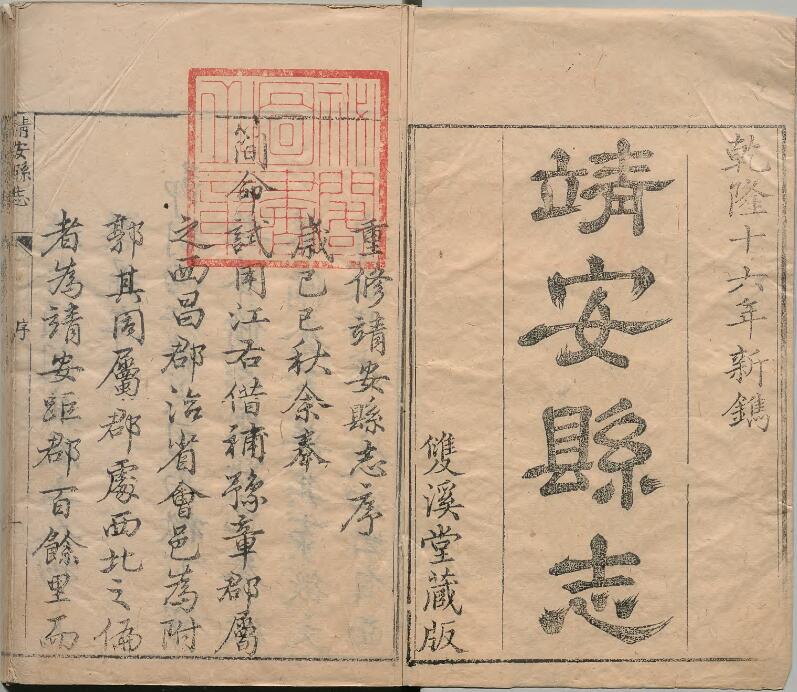 乾隆十六年新鐫
靖安縣志
雙溪堂藏版
重修靖安縣志序
歲己巳秋余奉
簡命試用江右借補豫章郡屬
之西昌郡治省會邑為附
郭其同屬郡處西北之偏
者為靖安距郡百餘里而
靖安縣志
序
一